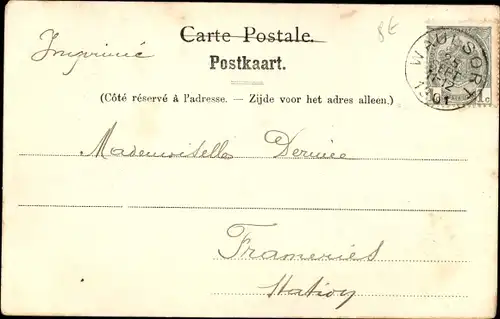 Carte Postale.
Imprimé
Postkaart.
8E
WAULSORT
1901
1c
(Côté réservé à l'adresse. – Zijde voor het adres alleen.)
Mademoiselles
Frameries
Station